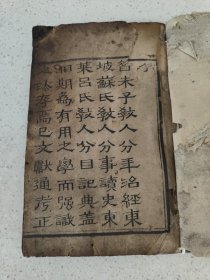 昔朱子教人分年治經東
坡蘇氏教人分事讀史東
萊呂氏教人分目記典蓋
期為有用之學而強識
存焉已文獻通考正